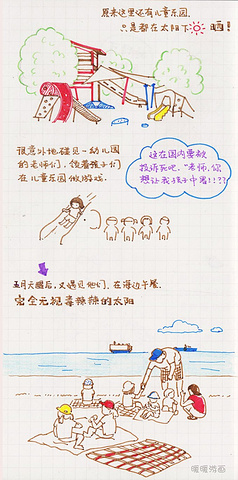 原来这里还有儿童乐园.
只是都在太阳下 晒!
很意外地碰见一幼儿园
的老师们,领着孩子们
在儿童乐园做游戏.
这在国内要被
投诉死吧,"老师,你
想让我孩子中暑!!??
五月天腿后,又遇见他们,在海边午餐.
完全无视毒辣辣的太阳
暖暖游画